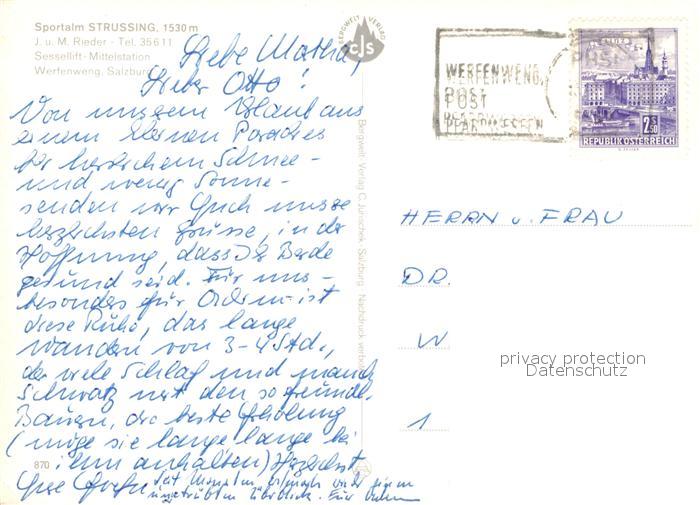 Sportalm STRUSSING, 1530 m
J. u. M. Rieder - Tel. 35611
Sessellift-Mittelstation
Werfenweng, Salzburg
Liebe Martha,
Lieber Otto!
Von unserem Urlaub aus
einem kleinen Paradies
bei herrlichem Schnee -
und wenig Sonne -
senden wir Euch unsere
herzlichsten Grüsse, in der
Hoffnung, dass Ihr Beide
gesund seid. Für uns -
besonders für - ist
diese Ruhe, das lange
Wandern von 3-4 Std.,
der viele Schlaf und manch
Schwatz mit den so freundl.
Bauern, die beste Erholung
(möge sie lange lange bei
ihm anhalten) Herzlichst
Eure
Seit Monaten erstmals wieder einen
ungetrübten Überblick. Für
870
BERGWELT VERLAG
CJS
Bergwelt Verlag C. Jurischek, Salzburg Nachdruck verboten
WERFENWENG,
POST
PFARRWERFEN
2 S 50
REPUBLIK ÖSTERREICH
HERRN u. FRAU
DR.
W
1
privacy protection
Datenschutz